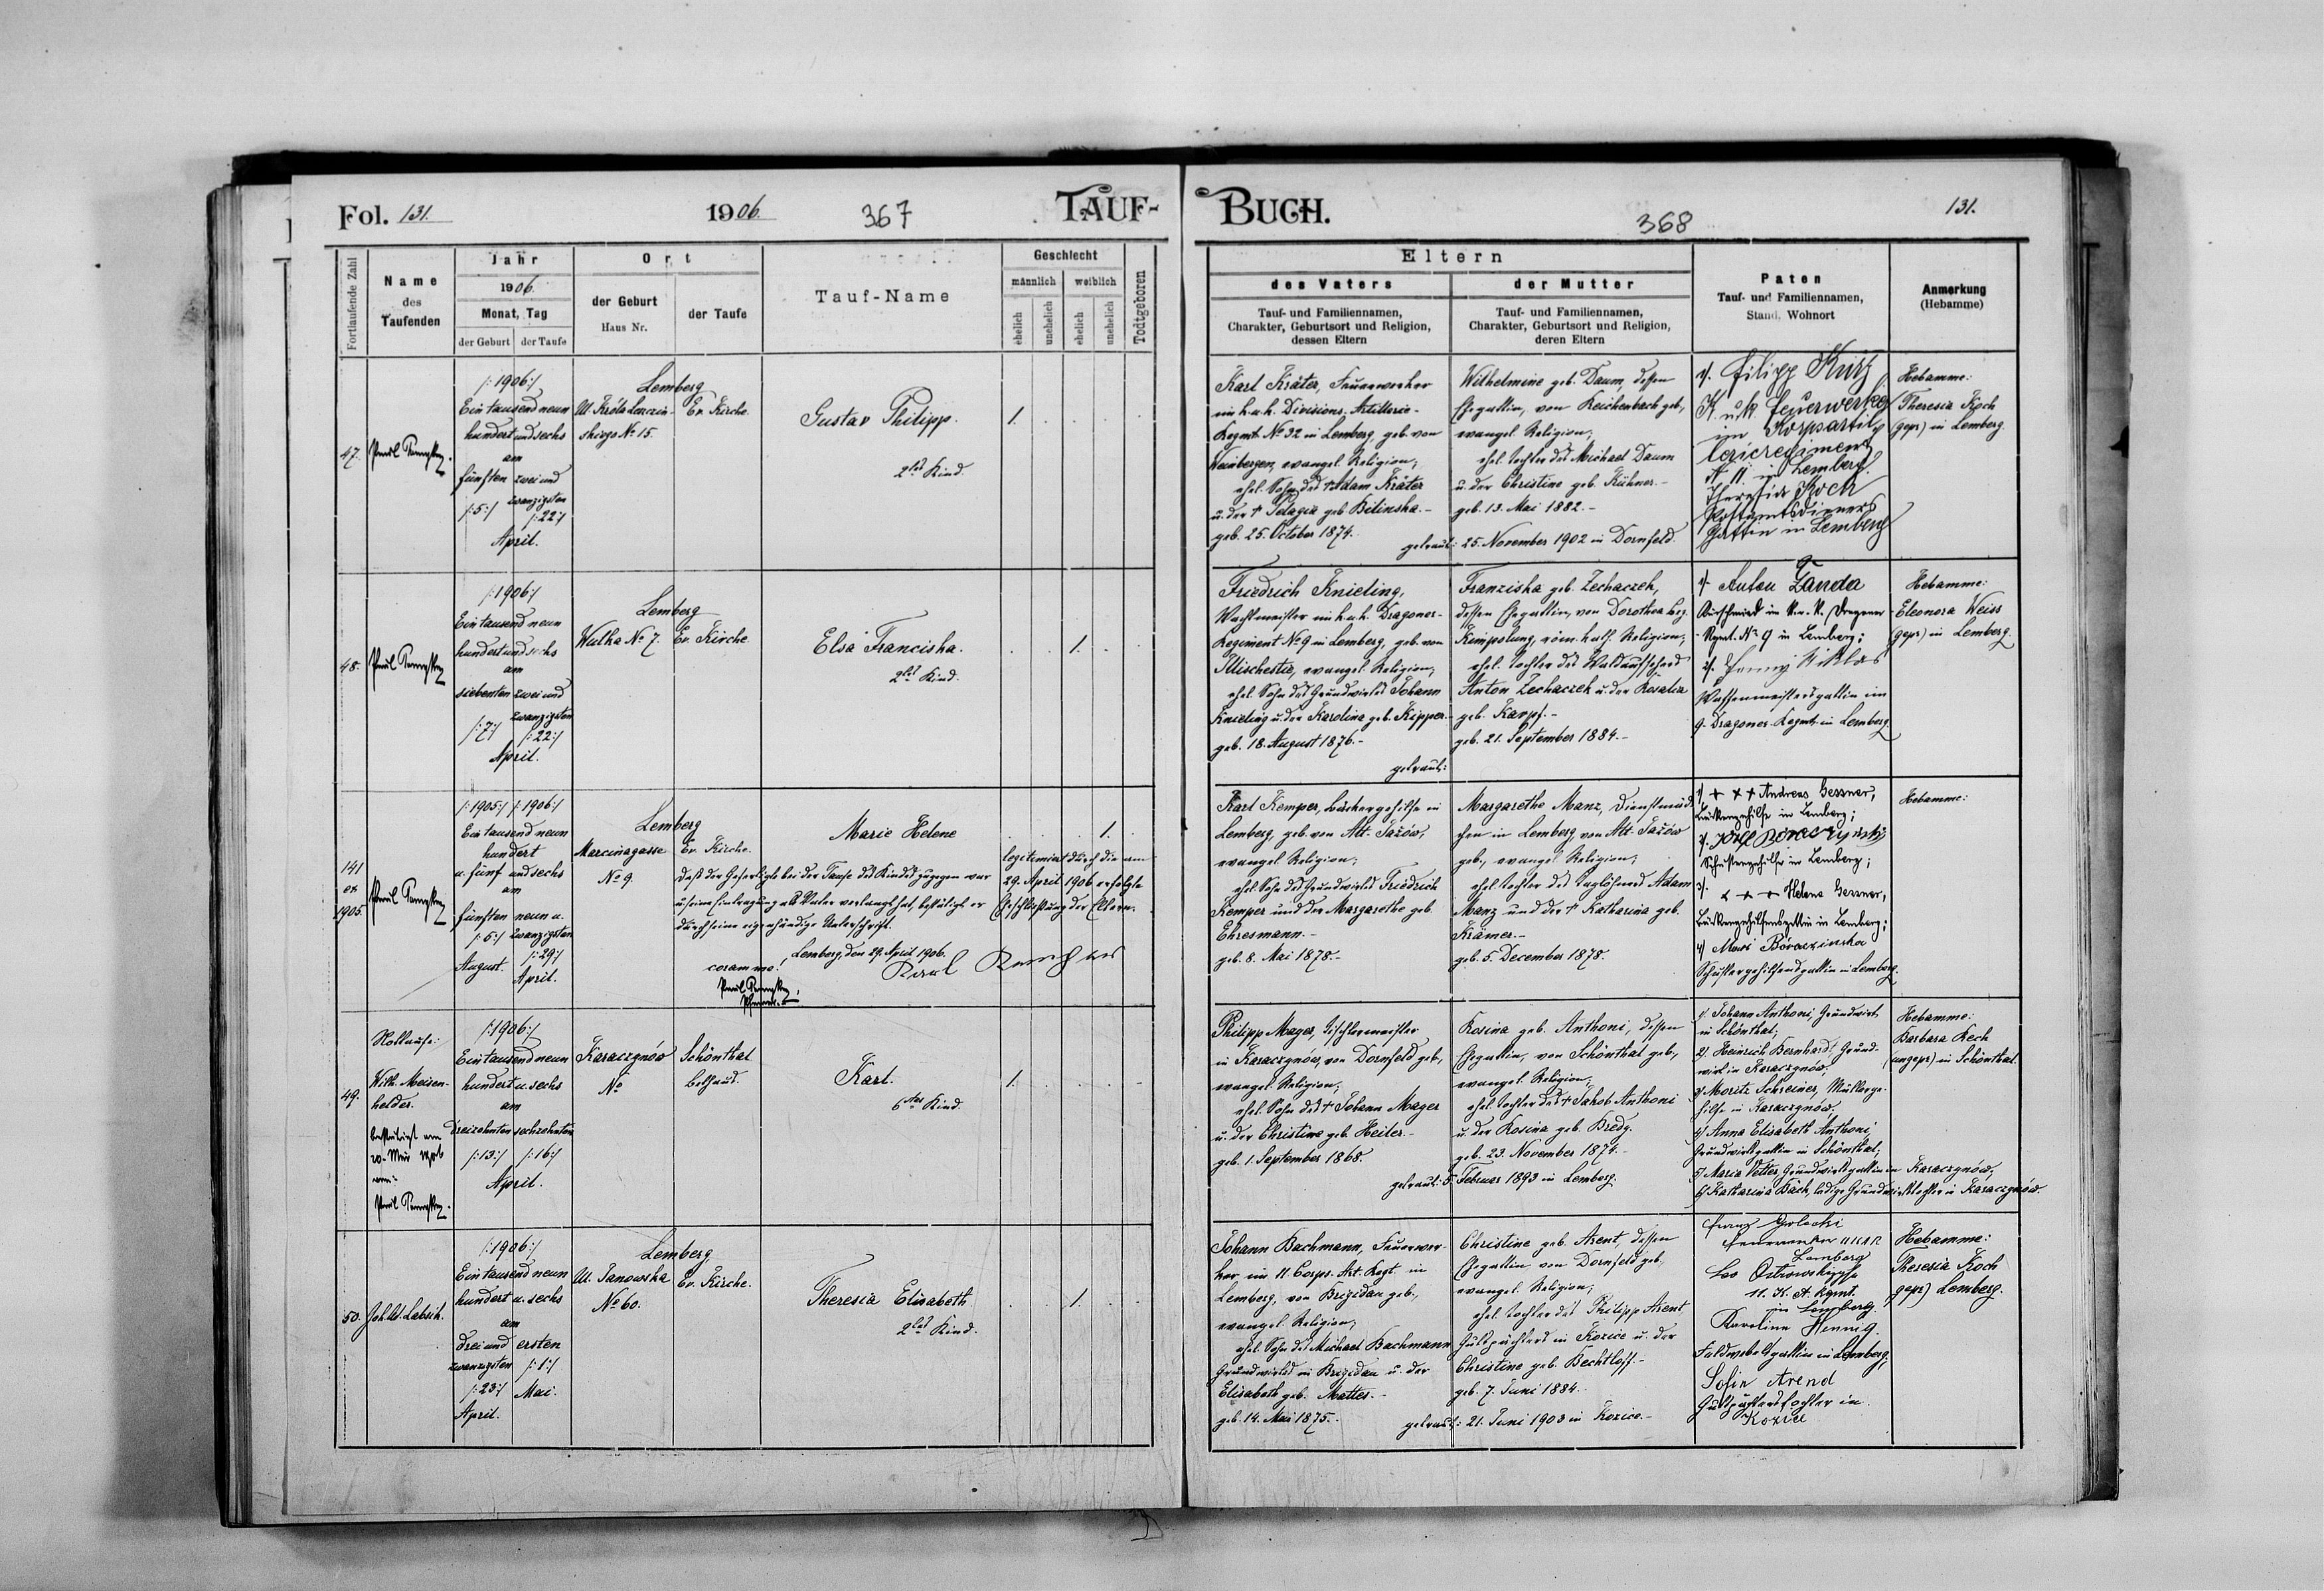 Fol. 131.
1906.
367
TAUF-
Fortlaufende Zahl
Name
des
Taufenden
Jahr
1906.
Monat, Tag
der Geburt
der Taufe
Ort
der Geburt
Haus Nr.
der Taufe
Tauf-Name
Geschlecht
männlich
weiblich
ehelich
unehelich
ehelich
unehelich
Todtgeboren
47.
/:1906:/
Ein tausend neun
hundert und sechs
am
fünften zwei und
zwanzigsten
/:5:/ /:22:/
April.
Lemberg
No 15.
Ev. Kirche.
Gustav Philipp.
2tes Kind.
1.
48.
/:1906:/
Ein tausend neun
hundert und sechs
am
siebenten zwei und
zwanzigsten
/:7:/ /:22:/
April.
Lemberg
Wulka No 7.
Ev. Kirche.
Elsa Franciska.
2tes Kind.
1.
141
ex
1905.
/:1905:/ /:1906:/
Ein tausend neun
hundert
u. fünf und sechs
am
fünften neun u.
/:5:/ zwanzigsten
/:29:/
August. April.
Lemberg
Marcinagasse
No 9.
Ev. Kirche.
Marie Helene
1.
Daß der Gefertigte bei der Taufe des Kindes zugegen war
u. seine Eintragung als Vater verlangt hat, bestätigt er
durch seine eigenhändige Unterschrift.
Lemberg, den 29. April 1906.
coram me!
legitimiert durch die am
29. April 1906 erfolgte
Eheschließung der Eltern.
49.
Nottaufe:
Wilh. Meisen-
helder.
bestätigt am
/:1906:/
Ein tausend neun
hundert u. sechs
am
dreizehnten sechzehnten
/:13:/ /:16:/
April.
Karaczynów
No
Schönthal
Bethaus.
Karl.
6tes Kind.
1.
50.
/:1906:/
Ein tausend neun
hundert u. sechs
am
drei und ersten
zwanzigsten /:1:/
/:23:/ Mai.
April.
Lemberg
Ul. Janowska
No 60.
Ev. Kirche.
Theresia Elisabeth
2tes Kind.
1.
BUCH.
368
131.
Eltern
des Vaters
Tauf- und Familiennamen,
Charakter, Geburtsort und Religion,
dessen Eltern
der Mutter
Tauf- und Familiennamen,
Charakter, Geburtsort und Religion,
deren Eltern
Paten
Tauf- und Familiennamen,
Stand, Wohnort
Anmerkung
(Hebamme)
Karl Kräter, Feuerwerker
im k. u. k. Divisions-Artillerie-
Regmt. No 32 in Lemberg, geb. von
Weinbergen, evangel. Religion;
ehel. Sohn des † Adam Kräter
u. der † Pelagia geb. Bilinska.-
geb. 25. October 1874.
Wilhelmine geb. Daum, dessen
Ehegattin, von Reichenbach geb.,
evangel. Religion;
ehel. Tochter des Michael Daum
u. der Christine geb. Kühner.-
geb. 13. Mai 1882.-
getraut: 25. November 1902 in Dornfeld.
1/. Filipp Kurz
K. u. k. Feuerwerker
im Korpsartil
lerieregiment
N 11 in Lemberg.
Theresia Koch
Postamtsdieners
Gattin in Lemberg
Hebamme:
Theresia Koch
(gepr.) in Lemberg.
Friedrich Knieling,
Wachtmeister im k. u. k. Dragoner-
Regiment No 9 in Lemberg, geb. von
Illischestie, evangel. Religion,
ehel. Sohn des Grundwirtes Johann
Knieling u. der Karolina geb. Kipper.-
geb. 18. August 1876.-
Franziska geb. Zechaczek,
dessen Ehegattin, von Dorothea bez.
Kimpolung, röm. kath. Religion;
ehel. Tochter des Waldaufsehers
Anton Zechaczek u. der Rosalia
geb. Karpf.-
geb. 21. September 1884.-
getraut:
1/. Anton Landa
Kurschmied im k. u. k. Dragoner
Regmt. No 9 in Lemberg;
Wachtmeistersgattin im
9. Dragoner-Regmt. in Lemberg
Hebamme:
Eleonora Weiss
(gepr.) in Lemberg.
Karl Kemper, Bäckergehilfe in
Lemberg, geb. von Alt-Jazów,
evangel. Religion;
ehel. Sohn des Grundwirtes Friedrich
Kemper und der Margarethe geb.
Ehresmann.-
geb. 8. Mai 1878.-
Margarethe Manz, Dienstmäd-
chen in Lemberg von Alt-Jazów
geb., evangel. Religion;
ehel. Tochter des Taglöhners Adam
Manz und der † Katharina geb.
Krämer.-
geb. 5. December 1878.
1/ + + + Andreas Gessner,
Bäckergehilfe in Lemberg;
Schustergehilfe in Lemberg;
3/. + + + Helena Gessner,
Bäckergehilfensgattin in Lemberg;
Schustergehilfensgattin in Lemberg.
Hebamme:
Philipp Mager, Tischlermeister
in Karaczynów, von Dornfeld geb.,
evangel. Religion;
ehel. Sohn des † Johann Mager
u. der Christine geb. Heiler.-
geb. 1. September 1868.
Rosina geb. Anthoni, dessen
Ehegattin, von Schönthal geb.,
evangel. Religion;
ehel. Tochter des † Jakob Anthoni
u. der Rosina geb. Bredy.
geb. 23. November 1874.-
getraut: 5. Februar 1893 in Lemberg.
1/. Johann Anthoni, Grundwirt
in Schönthal;
2/. Heinrich Bernhard, Grund-
wirt in Karaczynów;
3/ Moritz Schreiner, Müllerge-
hilfe in Karaczynów;
4/ Anna Elisabeth Anthoni,
Grundwirtsgattin in Schönthal;
5/ Maria Vetter, Grundwirtsgattin in Karaczynów;
6/ Katharina Bäck, ledige Grundwirtstochter in Karaczynów.
Hebamme:
Barbara Rech
(ungepr.) in Schönthal.
Johann Bachmann, Feuerwer-
ker im 11. Corps-Art. Regt. in
Lemberg, von Brigidau geb.,
evangel. Religion;
ehel. Sohn des Michael Bachmann
Grundwirtes in Brigidau u. der
Elisabeth geb. Mattes.-
geb. 14. Mai 1875.-
Christine geb. Arent, dessen
Ehegattin von Dornfeld geb.,
evangel. Religion;
ehel. Tochter des Philipp Arent
Gutspächters in Kozice u. der
Christine geb. Bechtloff.-
geb. 7. Juni 1884.-
getraut: 21. Juni 1903 in Kozice.-
Lemberg
11. K. A. Rgmt.
in Lemberg.
Karolina Hennig.
Feldwebelsgattin in Lemberg;
Sofia Arend
Gutspächterstochter in
Kozice
Hebamme:
Theresia Koch
gepr.) Lemberg.